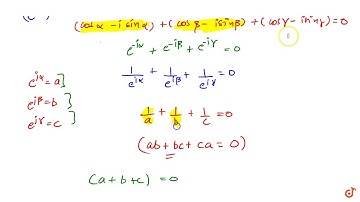 (cosα - i sinα) + (cosβ - i sinβ) + (cosγ - i sinγ) = 0
e^{-iα} + e^{-iβ} + e^{-iγ} = 0
1/e^{iα} + 1/e^{iβ} + 1/e^{iγ} = 0
e^{iα} = a]
e^{iβ} = b]
e^{iγ} = c]
1/a + 1/b + 1/c = 0
(ab + bc + ca = 0)
(a + b + c) = 0